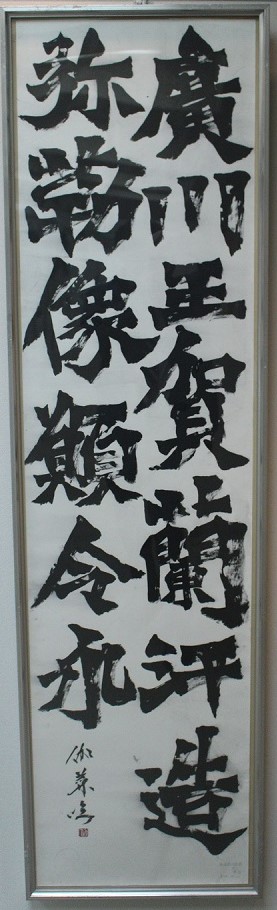 廣川王賀蘭汗造
弥勒像願令永